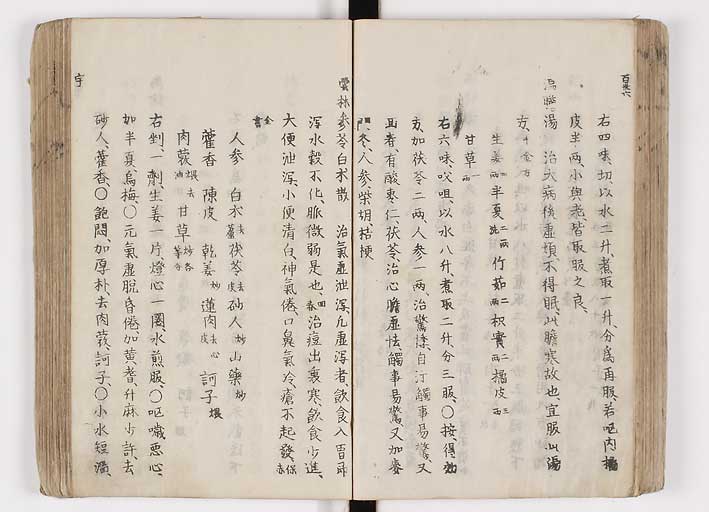 右四味切、以水二升、煮取一升、分為再服、若吃肉橘
皮半両、小與老皆取服之良、
温膽湯 治大病後虚煩、不得眠、此膽寒故也、宜服此湯
方、千金方
生姜四両 半夏二両洗 竹茹二両 枳實二両 橘皮三両
甘草一両
右六味㕮咀、以水八升、煮取二升、分三服、〇按、得効
方加茯苓二両、人参一両、治驚悸自汗、觸事易驚、又
有酸棗仁茯苓、治心膽虚怯、觸事易驚、又加麥
門冬、人参柴胡桔梗
雲林参苓白朮散 治氣虚泄瀉、凡虚瀉者、飲食入胃即
瀉、水穀不化、脈微弱是也、回春治痘出裏寒、飲食少進、
大便泄瀉、小便清白、神氣倦、口鼻氣冷、瘡不起發、保赤
全書
人参 白朮去蘆 茯苓去皮 砂人炒 山藥炒
藿香 陳皮 乾姜炒 蓮肉去心皮 訶子煨
肉蔲煨去油 甘草炒各等分
右剉一劑、生姜一片、燈心一團、水煎服、〇嘔噦悪心、
加半夏、烏梅、〇元氣虚脱昏倦、加黄耆、升麻少許、去
砂人、藿香、〇飽悶、加厚朴、去肉蔲訶子、〇小水短濇、